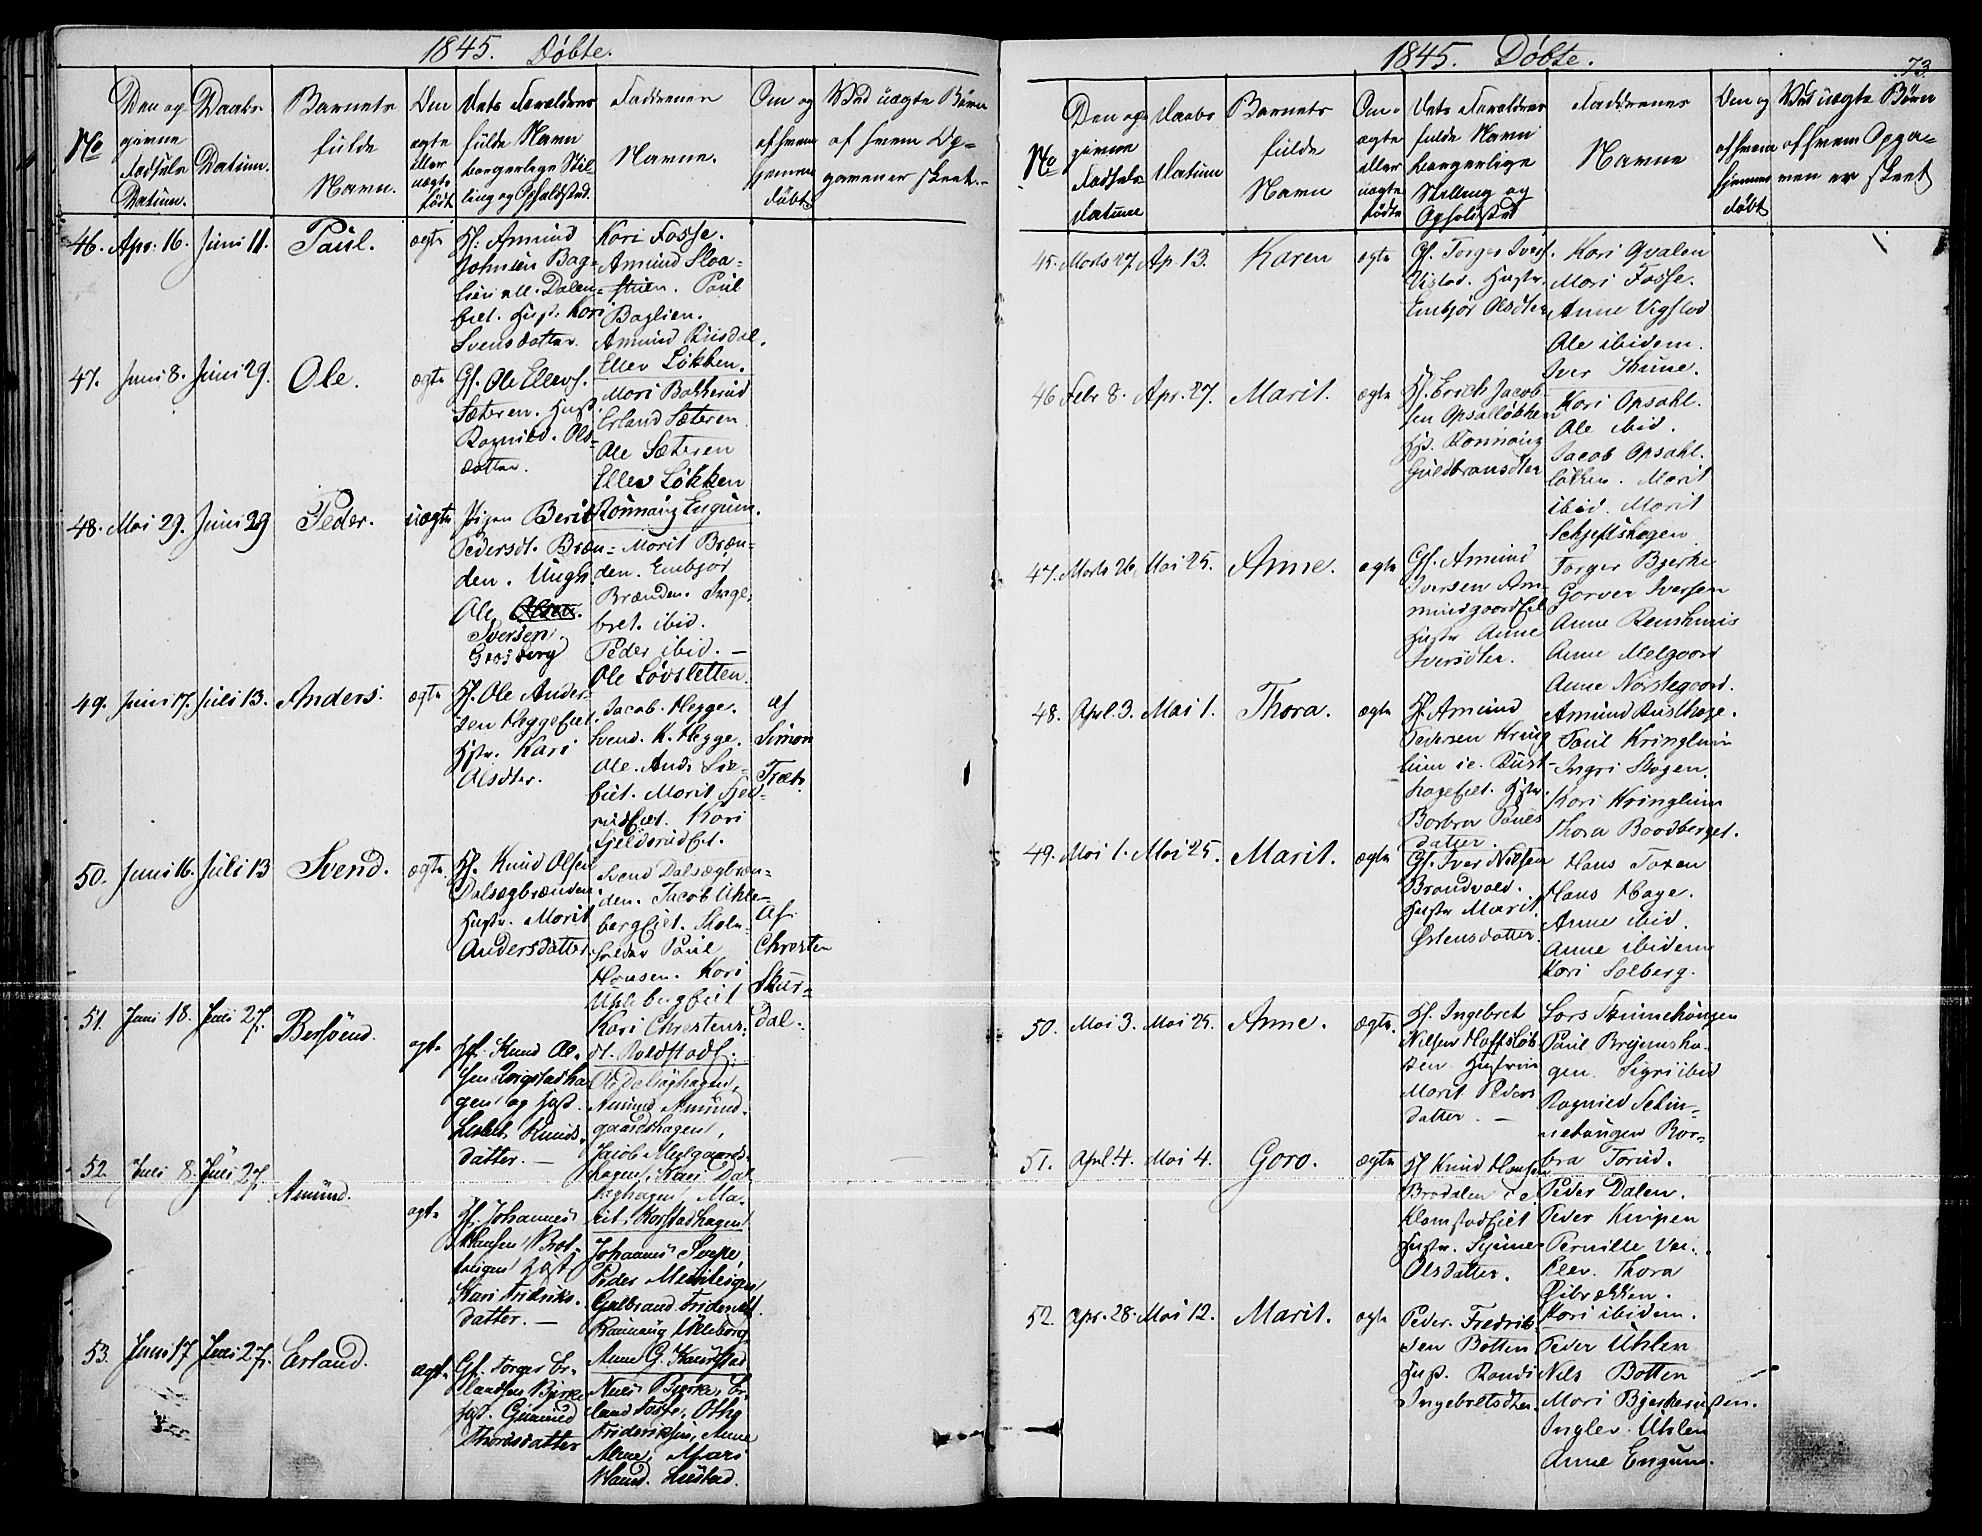 1845. Døbte.
No
Den og
givne
Fødsels
Datum.
Daabs
Datum.
Barnets
fulde
Navn.
Om
ægte
eller
uægte
født
Dets Forældres
fulde Navn
borgerlige Stil-
ling og Opholdsted.
Faddrenes
Navne.
Om og
af hvem
hjemme
døbt
Ved uægte Børn
af hvem Op-
gaven er skeet.
46. Apr. 16. Juni 11. Paul. ægte
Hf. Amund
Johnsen Bag-
lien all. Dalen-
eiet. Hust. Kari
Svensdatter.
Kari Fosse.
Amund Sloa-
stuen. Paul
Baglien.
Amund Ruisdal.
Eller Løkken.
47. Juni 8. Juni 29. Ole. ægte
Gf. Ole Ellevs.
Sæteren. Hust.
Ragnild. Ols-
datter.
Mari Bakkerud
Erland Sæteren
Ole Sæteren
Ellev Løkken
48. Mai 29. Juni 29 Peder. uægte
Pigen Berit
Pedersdt. Bræn-
den. Ungk.
Ole Olsen.
Iversen
Grosberg
Rønnaug Engum.
Marit Bræn-
den. Embjør
Brænden. Inge-
bret. ibid.
Peder ibid. —
Ole Løvsletten.
49. Juni 17. Juli 13. Anders. ægte
Hf. Ole Ander-
sen Heggeeiet.
Hstr. Kari
Olsdter.
Jacob. Hegge.
Svend. K. Hegge.
Ole. And.
eiet. Marit
Kari
af
Simon
Træt.
50. Juni 16. Juli 13 Svend. ægte
Hf. Knud Olsen
Dalsægbrænden.
Hustr. Marit
Andersdatter.
Svend Dalsægbræn-
den. Jacob Uhle-
bergeiet. Skole-
holder Paul
Hansen. Kari
Uhlebergeiet
Kari Christens-
dt.
Af
Christen
Skur-
dal.
51. Juni 18. Juli 27. Bersvend. ægte
Hf. Knud Ol-
sen
gen og Hust.
Lisbet Knuds-
datter. —
Ole Dalseghagen,
Amund Amund-
gaardshagen,
Jacob Melgaards-
hagen, Kari Dal-
seghagen, Ma-
rit, Korstadhagen
52. Juli 8. Juli 27. Amund. ægte
Hf. Johannes
Hansen Brot-
Hust.
Kari Fridriks-
datter. —
Johannes
Peder
Gulbrand Friderichs.
Rønnaug Uhleberg
Anne G.
53. Juni 17 Juli 27. Erland. ægte
Gf. Torger Er-
landsen Bjerke
Hust. Gunild
Thordsdatter
Niels Bjerke, Er-
land Fosse, Othy
Frideriksen, Anne
Marie, Mari
Haund. Listad.
1845. Døbte.
73.
No
Den og
givne
Fødsels
datum
Daabs
Datum
Barnets
fulde
Navn
Om
ægte
eller
uægte
fødte
Dets Forældres
fulde Navn
borgerlige
Stilling og
Opholdsted
Faddrenes
Navne
Om og
af hvem
hjemme
døbt
Ved uægte Børn
af hvem Opga-
ven er skeet
45. Marts 27. Ap. 13. Karen ægte
Gf. Torger Ivers.
Vistad. Hustr.
Embjør Olsdter
Kari Qvalen
Mari Fosse.
Anne Vigstad
Ole ibidem.
Iver Thune.
46 Febr 8. Apr. 27. Marit. ægte
Hf. Erich Jacob-
sen Opsalløkken
Hst. Rønnaug
Guldbransdter
Kari Opsahl.
Ole ibid.
Jacob Opsahl-
løkken. Marit
ibid. Marit
Schjeftshagen.
47. Marts 26. Mai 25. Anne. ægte
Gf. Amund
Iversen Am-
mundgaardeiet
Hustr Anne
Iversdter.
Torger Bjerke
Gorver Iversen
Anne Renshuus
Anne Melgaard
Anne Nørstegaard.
48. Apl. 3. Mai 1. Thora. ægte
Hf. Amund
Pedersen Kring-
luen ie. Rust-
hageeiet. Hstr.
Barbra Pauls-
datter.
Amund Rusthage.
Paul Kringluen
Ingri Skogen.
Kari Kringluen
Thora Boodberget.
49. Mai 1. Mai 25. Marit. ægte
Gf. Iver Nilsen
Brandvold.
Hustr Marit
Østensdatter.
Hans Toxen
Hans Hage.
Anne ibid.
Anne ibidem
Kari Solberg.
50. Mai 3. Mai 25. Anne. ægte.
Hf. Ingebret
Nilsen Hoffsløk-
ken Hustrue
Marit Peders
datter. —
Lars Tminnehaugen
Paul Bryensha-
gen. Sigri ibid
Ragnild
Bar-
bra Torud.
51. April 4. Mai 4. Goro. ægte
Hf Knud Hansen
Bradalen i e.
Klomstadeiet
Hustr.
Olsdatter.
Peder Dalen.
Peder Knipen
Pernille
Elev. Thora
Øibrækken.
Kari ibidem.
52. Apr. 28. Mai 12. Marit. ægte
Peder. Fredrik-
sen Botten
Hust. Randi
Ingebretsdter.
Peder Uhlen
Nils Botten
Mari Bjerkerusten.
Ingler. Uhlen
Anne Engum.